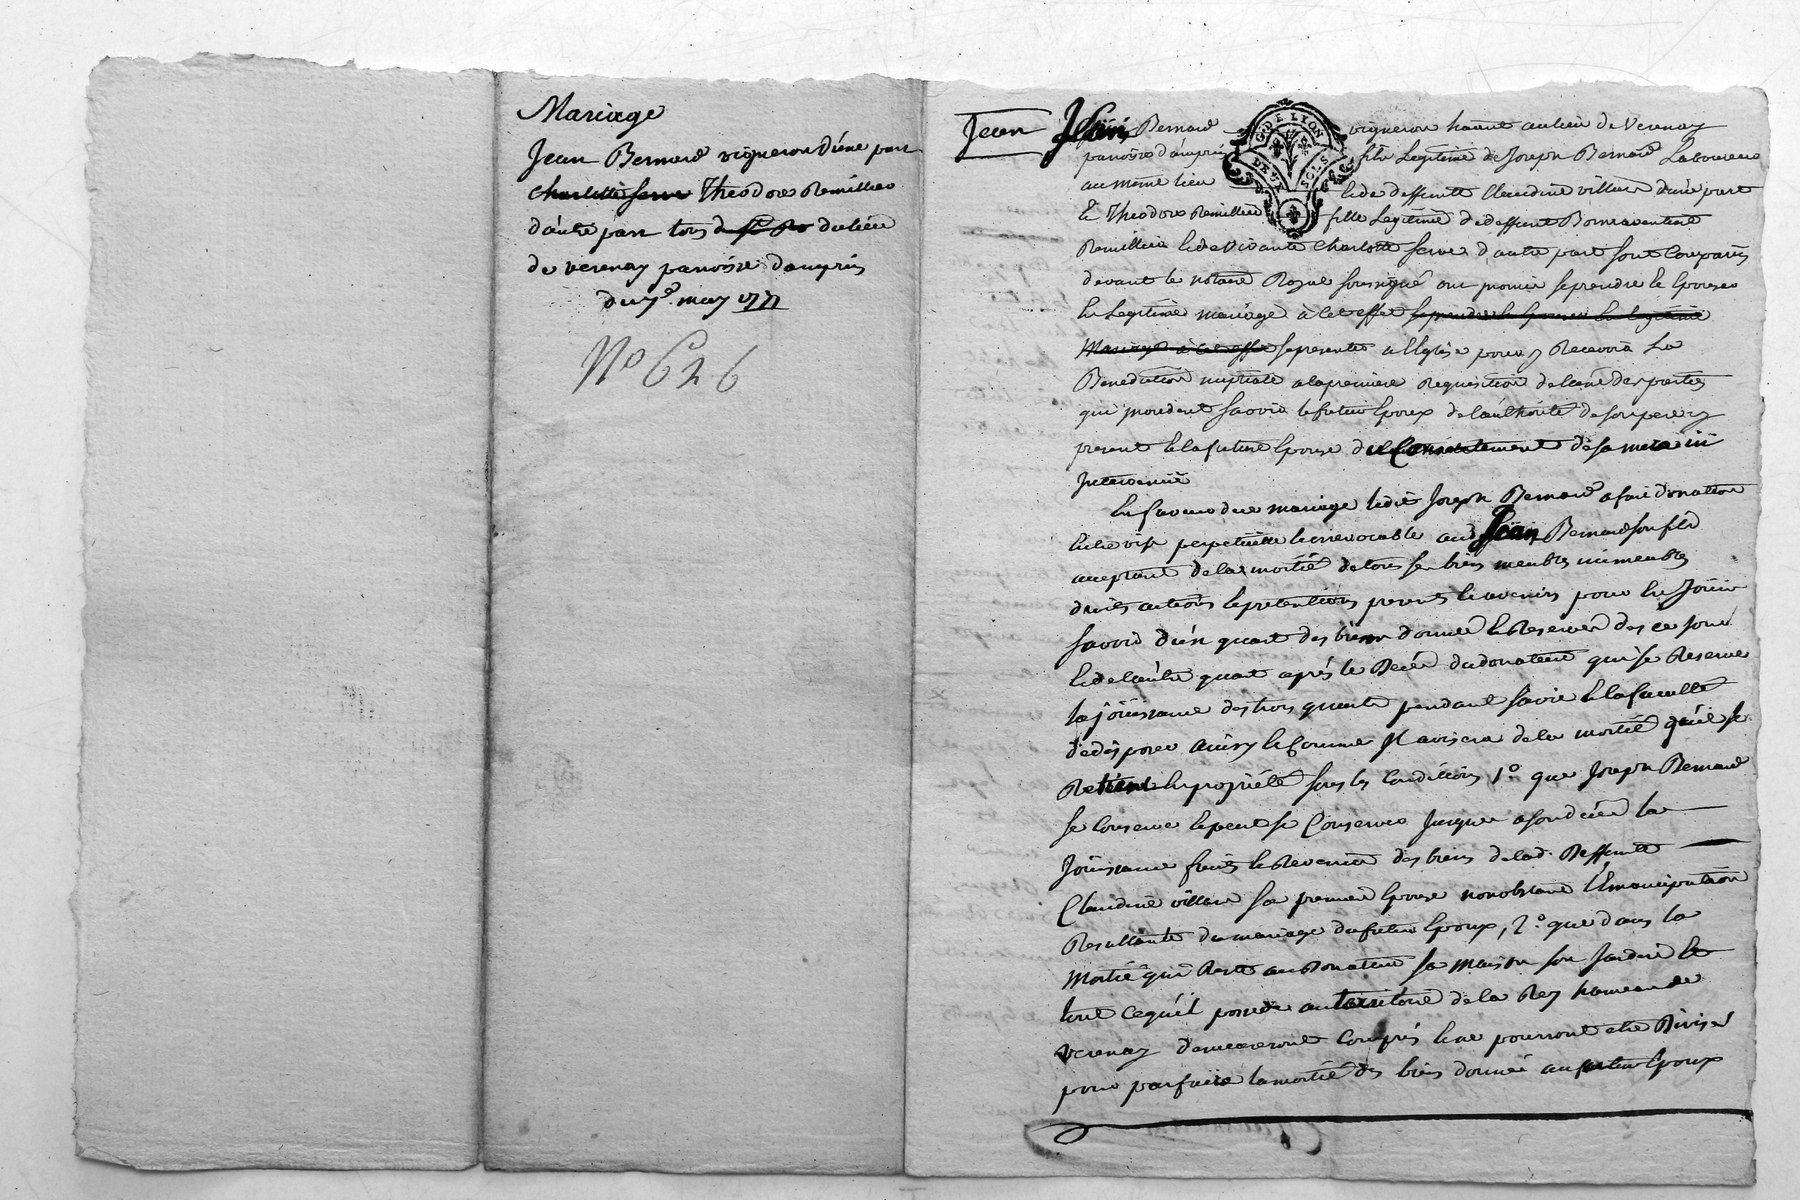 Mariage
Jean Bernard vigneron d'une part
Charlotte Serve Theodore Remillieu
d'autre part tous d du lieu
de verenay paroisse d'ampuis
du 7e may 1771
No 626
Jean Jean Bernard vigneron habitant au lieu de Verenay
paroisse d'ampuis fils Legitime de Joseph Bernard Laboureur
au même lieu et de deffunte Claudine villars d'une part
Et Theodore Remillieu fille Legitime de deffunt Bonnaventure
Remillieu et de vivante Charlotte Serve d'autre part sont Comparus
devant le notaire Royal soussigné ont promis se prendre et Epouser
En Legitime mariage à Cet effet se prendre et Epouser En legitime
Mariage à cet effet se presenter a l'Eglise pour y Recevoir La
Benediction nuptiale a la premiere Requisition de l'une des parties
qui procedent savoir le futur Epoux de l'authorité de son pere y
present et la future Epouse du Consentement de sa mere ici
Intervenue
En faveur du mariage ledit Joseph Bernard a fait donation
Entre vifs perpetuelle et irrevocable aud Jean Bernard son fils
acceptant de la moitié de tous ses biens meubles immeubles
droits actions et pretentions presents et avenirs pour En Jouir
savoir d'un quart des biens donnés et Reservés des ce jour
et de l'autre quart après le Decès du donateur qui se Reserve
la jouissance des trois quarts pendant sa vie et la faculté
de disposer ainsy et Comme Il avisera de la moitié qu'il se
Retient En propriété sous les Conditions 1o que Joseph Bernard
se Conserve et peut se Conserver Jusques a son décès la
Jouissance fruits et Revenus des biens de lad. Deffunte
Claudine villars sa premiere Epouse nonobstant l'Emancipation
Resultante du mariage du futur Epoux, 2o que dans la
Moitié qui Reste au Donateur sa maison son Jardin et
tout Ce qu'il possede au territoire de la Rey hameau de
verenay demeureront Compris et ne pourront etre Divisés
pour parfaire la moitié des biens donnés au futur Epoux
G. DE LYON
DEUX SOLS